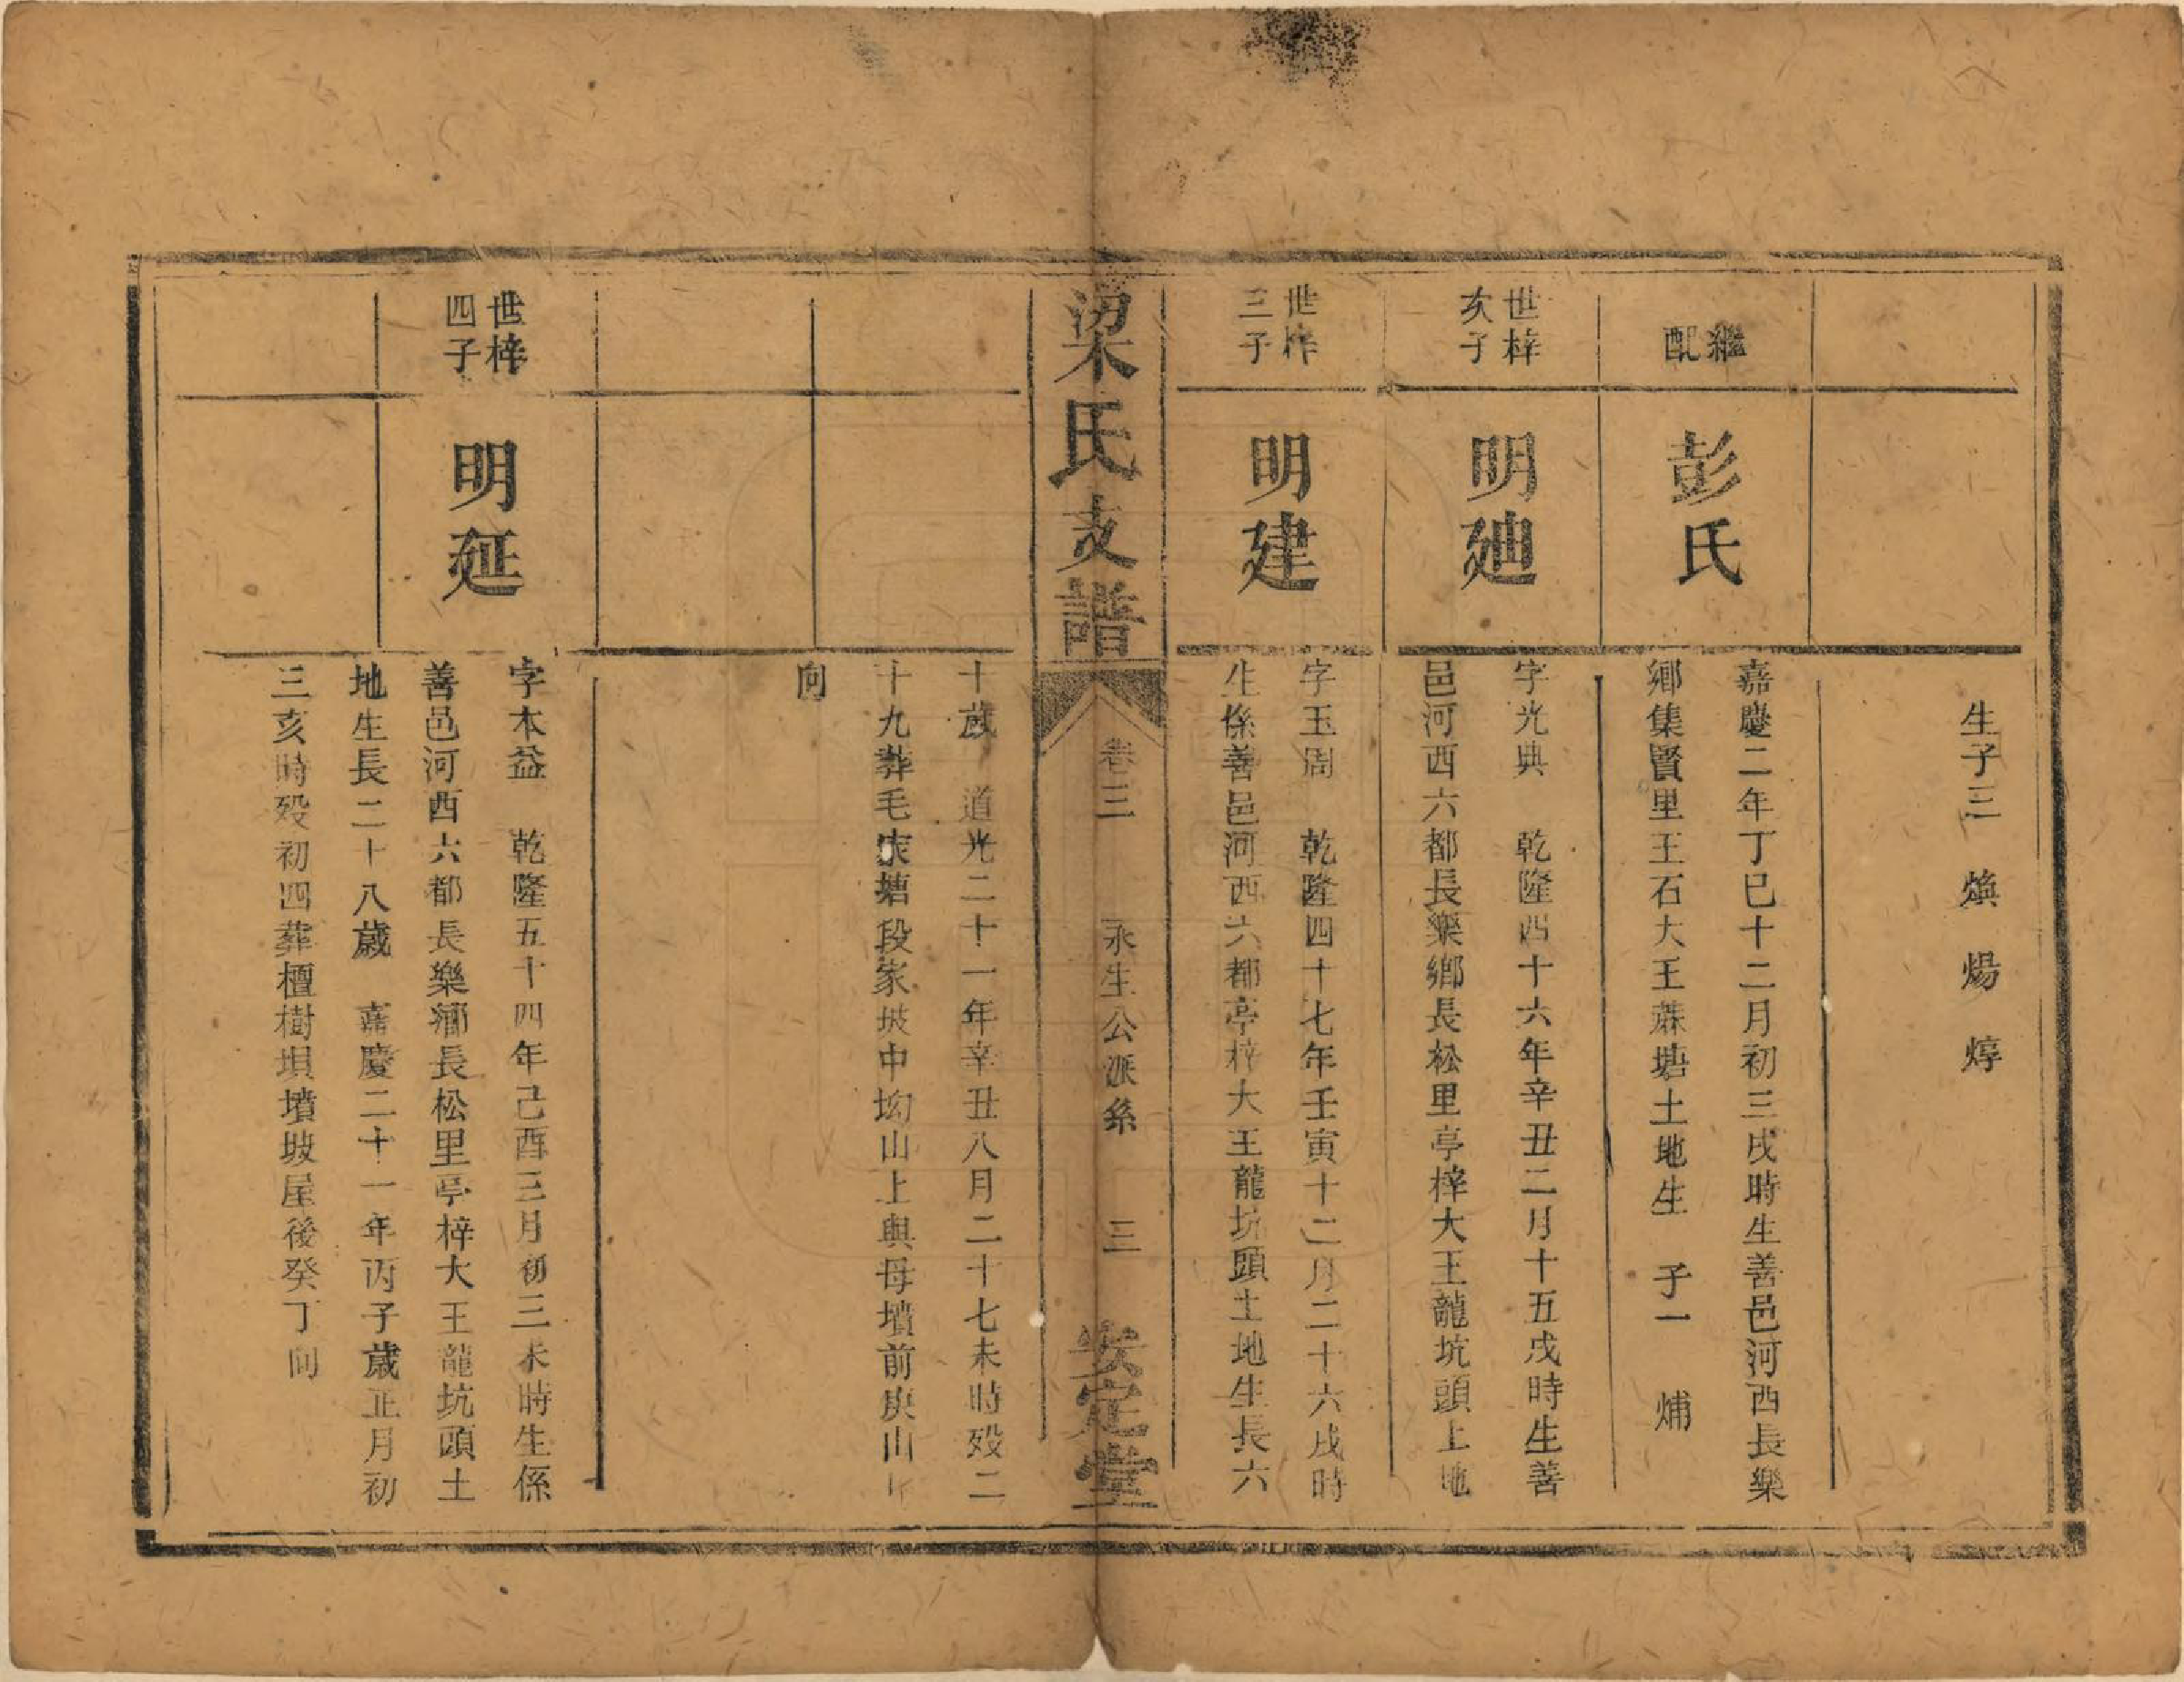 生子三　煥　煬　焞
繼
配
彭氏
嘉慶二年丁巳十二月初三戌時生善邑河西長樂
鄉集賢里王石大王蔴塘土地生　子一　烳
世梓
次子
明廸
字光典　乾隆四十六年辛丑二月十五戌時生善
邑河西六都長樂鄉長松里亭梓大王龍坑頭土地
世梓
三子
明建
字玉周　乾隆四十七年壬寅十二月二十六戌時
生係善邑河西六都亭梓大王龍坑頭土地生長六
梁氏支譜
卷三
永生公派系
三
安定堂
十歲　道光二十一年辛丑八月二十七未時歿二
十九葬毛家塘段家坡中坳山上與母墳前庚山
向
世梓
四子
明延
字木益　乾隆五十四年己酉三月初三未時生係
善邑河西六都長樂鄉長松里亭梓大王龍坑頭土
地生長二十八歲　嘉慶二十一年丙子歲正月初
三亥時歿初四葬檀樹垻墳坡屋後癸丁向